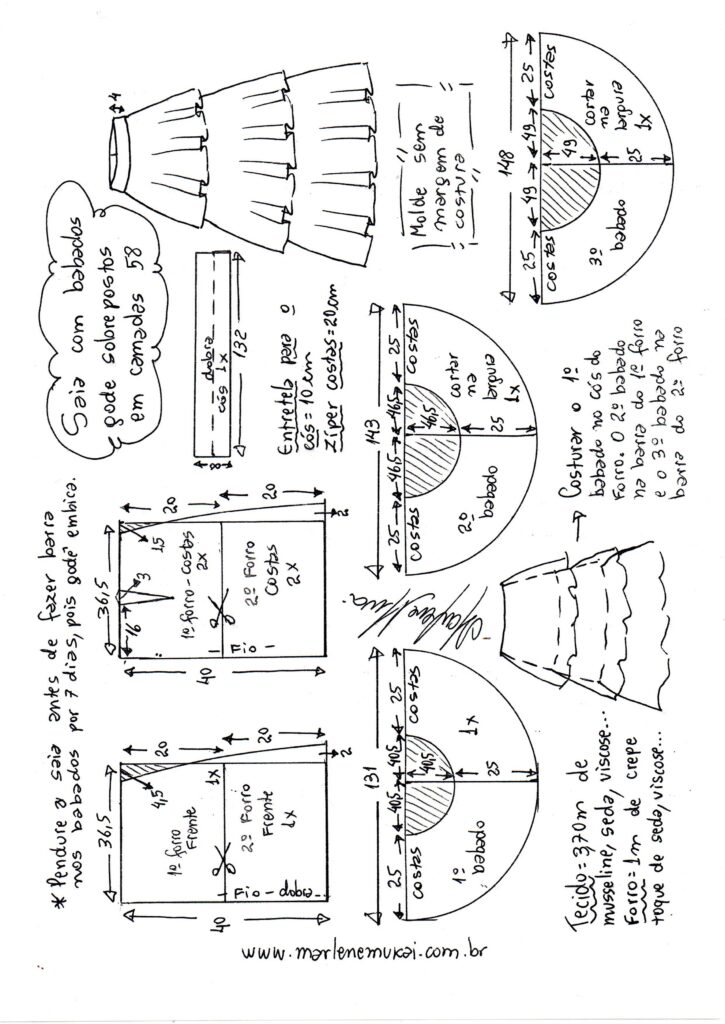 * Pendure a saia antes de fazer barra
nos babados por 7 dias, pois godê embica.
Saia com babados
gode sobrepostos
em camadas 58
4
36,5
4,5
20
20
2
40
1º forro
Frente
1x
2º Forro
Frente
1x
Fio - dobra
36,5
16
3
1,5
20
20
2
40
1º forro - costas
2x
2º Forro
Costas
2x
Fio
8
dobra
cós 1x
132
Entretela para o
cós = 10 cm
Zíper costas = 20 cm
Molde sem
margem de
costura
131
25
40,5
40,5
25
costas
costas
40,5
25
1º
babado
1x
143
25
46,5
46,5
25
costas
costas
46,5
25
2º
babado
cortar
na
largura
1x
148
25
49
49
25
costas
costas
49
25
3º
babado
cortar
na
largura
1x
Tecido = 3,70m de
musseline, seda, viscose...
Forro = 1m de crepe
toque de seda, viscose...
Costurar o 1º
babado no cós do
Forro. O 2º babado
na barra do 1º forro
e o 3º babado na
barra do 2º forro
www.marlenemukai.com.br